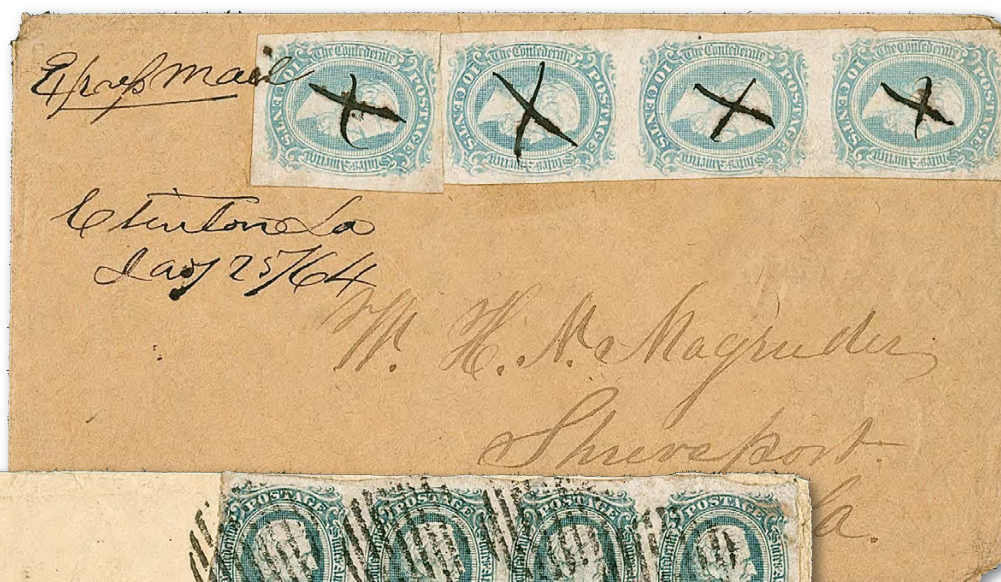 Express Mail
The Confederate States of America POSTAGE 10 CENTS
The Confederate States of America POSTAGE 10 CENTS
The Confederate States of America POSTAGE 10 CENTS
The Confederate States of America POSTAGE 10 CENTS
Clinton La
Jany 25/64
W. H. N. Magruder
Shreveport
La.
POSTAGE
POSTAGE
POSTAGE
POSTAGE